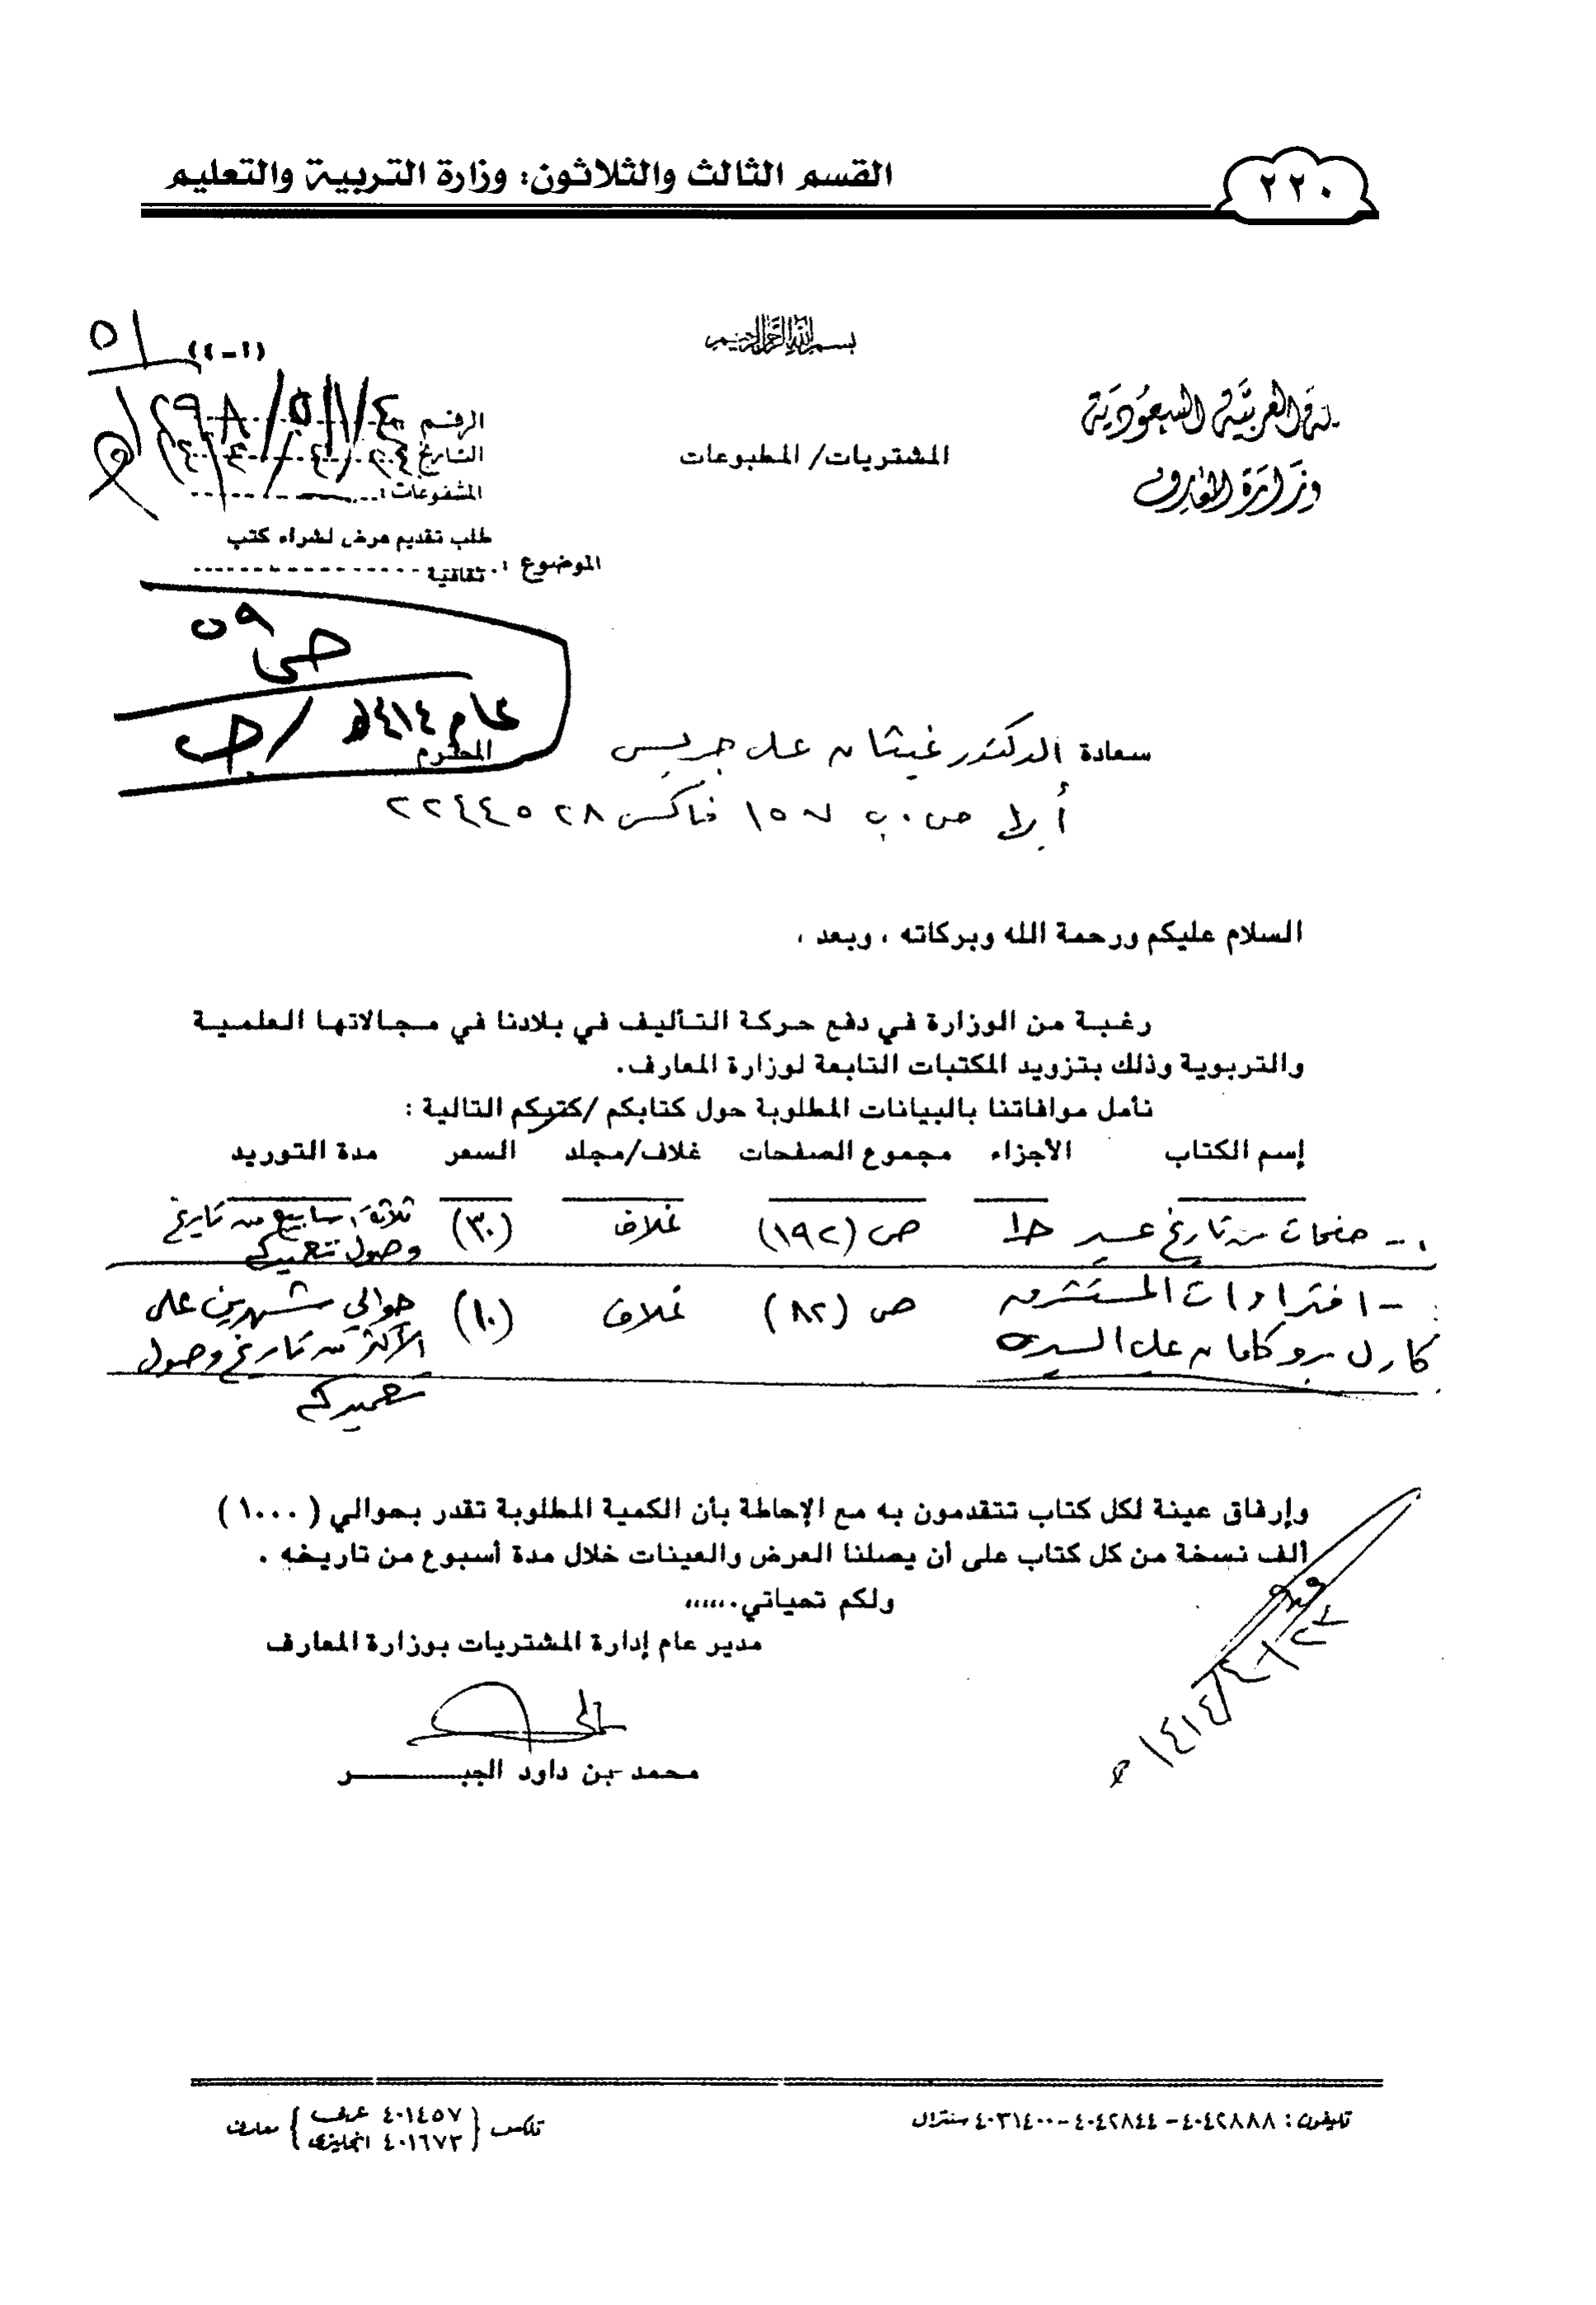 القسم الثالث والثلاثون: وزارة التربية والتعليم
٢٢٠
بسم الله الرحمن الرحيم
(١-٤)
العربية السعودية
وزارة المعارف
المشتريات/ المطبوعات
الرقم
التاريخ
المشفوعات :
طلب تقديم عرض لشراء كتب
الموضوع : ثقافية
عام ١٤١٤هـ / ج
سعادة الدكتور غيثان علي جريس المحترم
أبها ص.ب ١٥٧ فاكس ٢٢٤٤٥٢٨
السلام عليكم ورحمة الله وبركاته ، وبعد ،
رغبة من الوزارة في دفع حركة التأليف في بلادنا في مجالاتها العلمية
والتربوية وذلك بتزويد المكتبات التابعة لوزارة المعارف.
نأمل موافاتنا بالبيانات المطلوبة حول كتابكم /كتبكم التالية :
إسم الكتاب الأجزاء مجموع الصفحات غلاف/مجلد السعر مدة التوريد
١- صفحات من تاريخ عسير ج١ ص (١٩٢) غلاف (٣٠) ثلاثة أسابيع من تاريخ
وصول تعميدكم
- افتراءات المستشرق ص (٨٢) غلاف (١٠) حوالي شهرين على
كارل بروكلمان على السيرة الأكثر من تاريخ وصول
تعميدكم
وإرفاق عينة لكل كتاب تتقدمون به مع الإحاطة بأن الكمية المطلوبة تقدر بحوالي (١٠٠٠)
ألف نسخة من كل كتاب على أن يصلنا العرض والعينات خلال مدة أسبوع من تاريخه .
ولكم تحياتي،،،،،،
مدير عام إدارة المشتريات بوزارة المعارف
محمد بن داود الجبـــــــر
تليفون : ٤٠٤٢٨٨٨ - ٤٠٤٢٨٤٤ - ٤٠٣١٤٠٠ سنترال
تلكس { ٤٠١٤٥٧ عربي
٤٠١٦٧٣ انجليزي } معارف